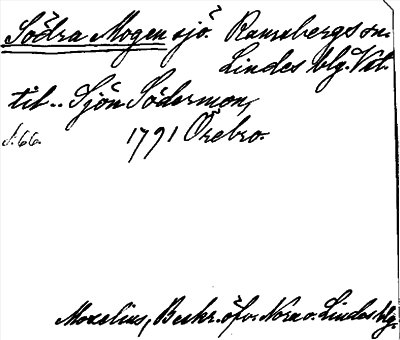 Södra Mogen sjö. Ramsbergs sn.
Lindes blg. Vstl.
tit.. Sjön Södermon,
s. 66. 1791 Örebro.
Moxelius, Beskr. öfv. Nora o. Lindes blg.